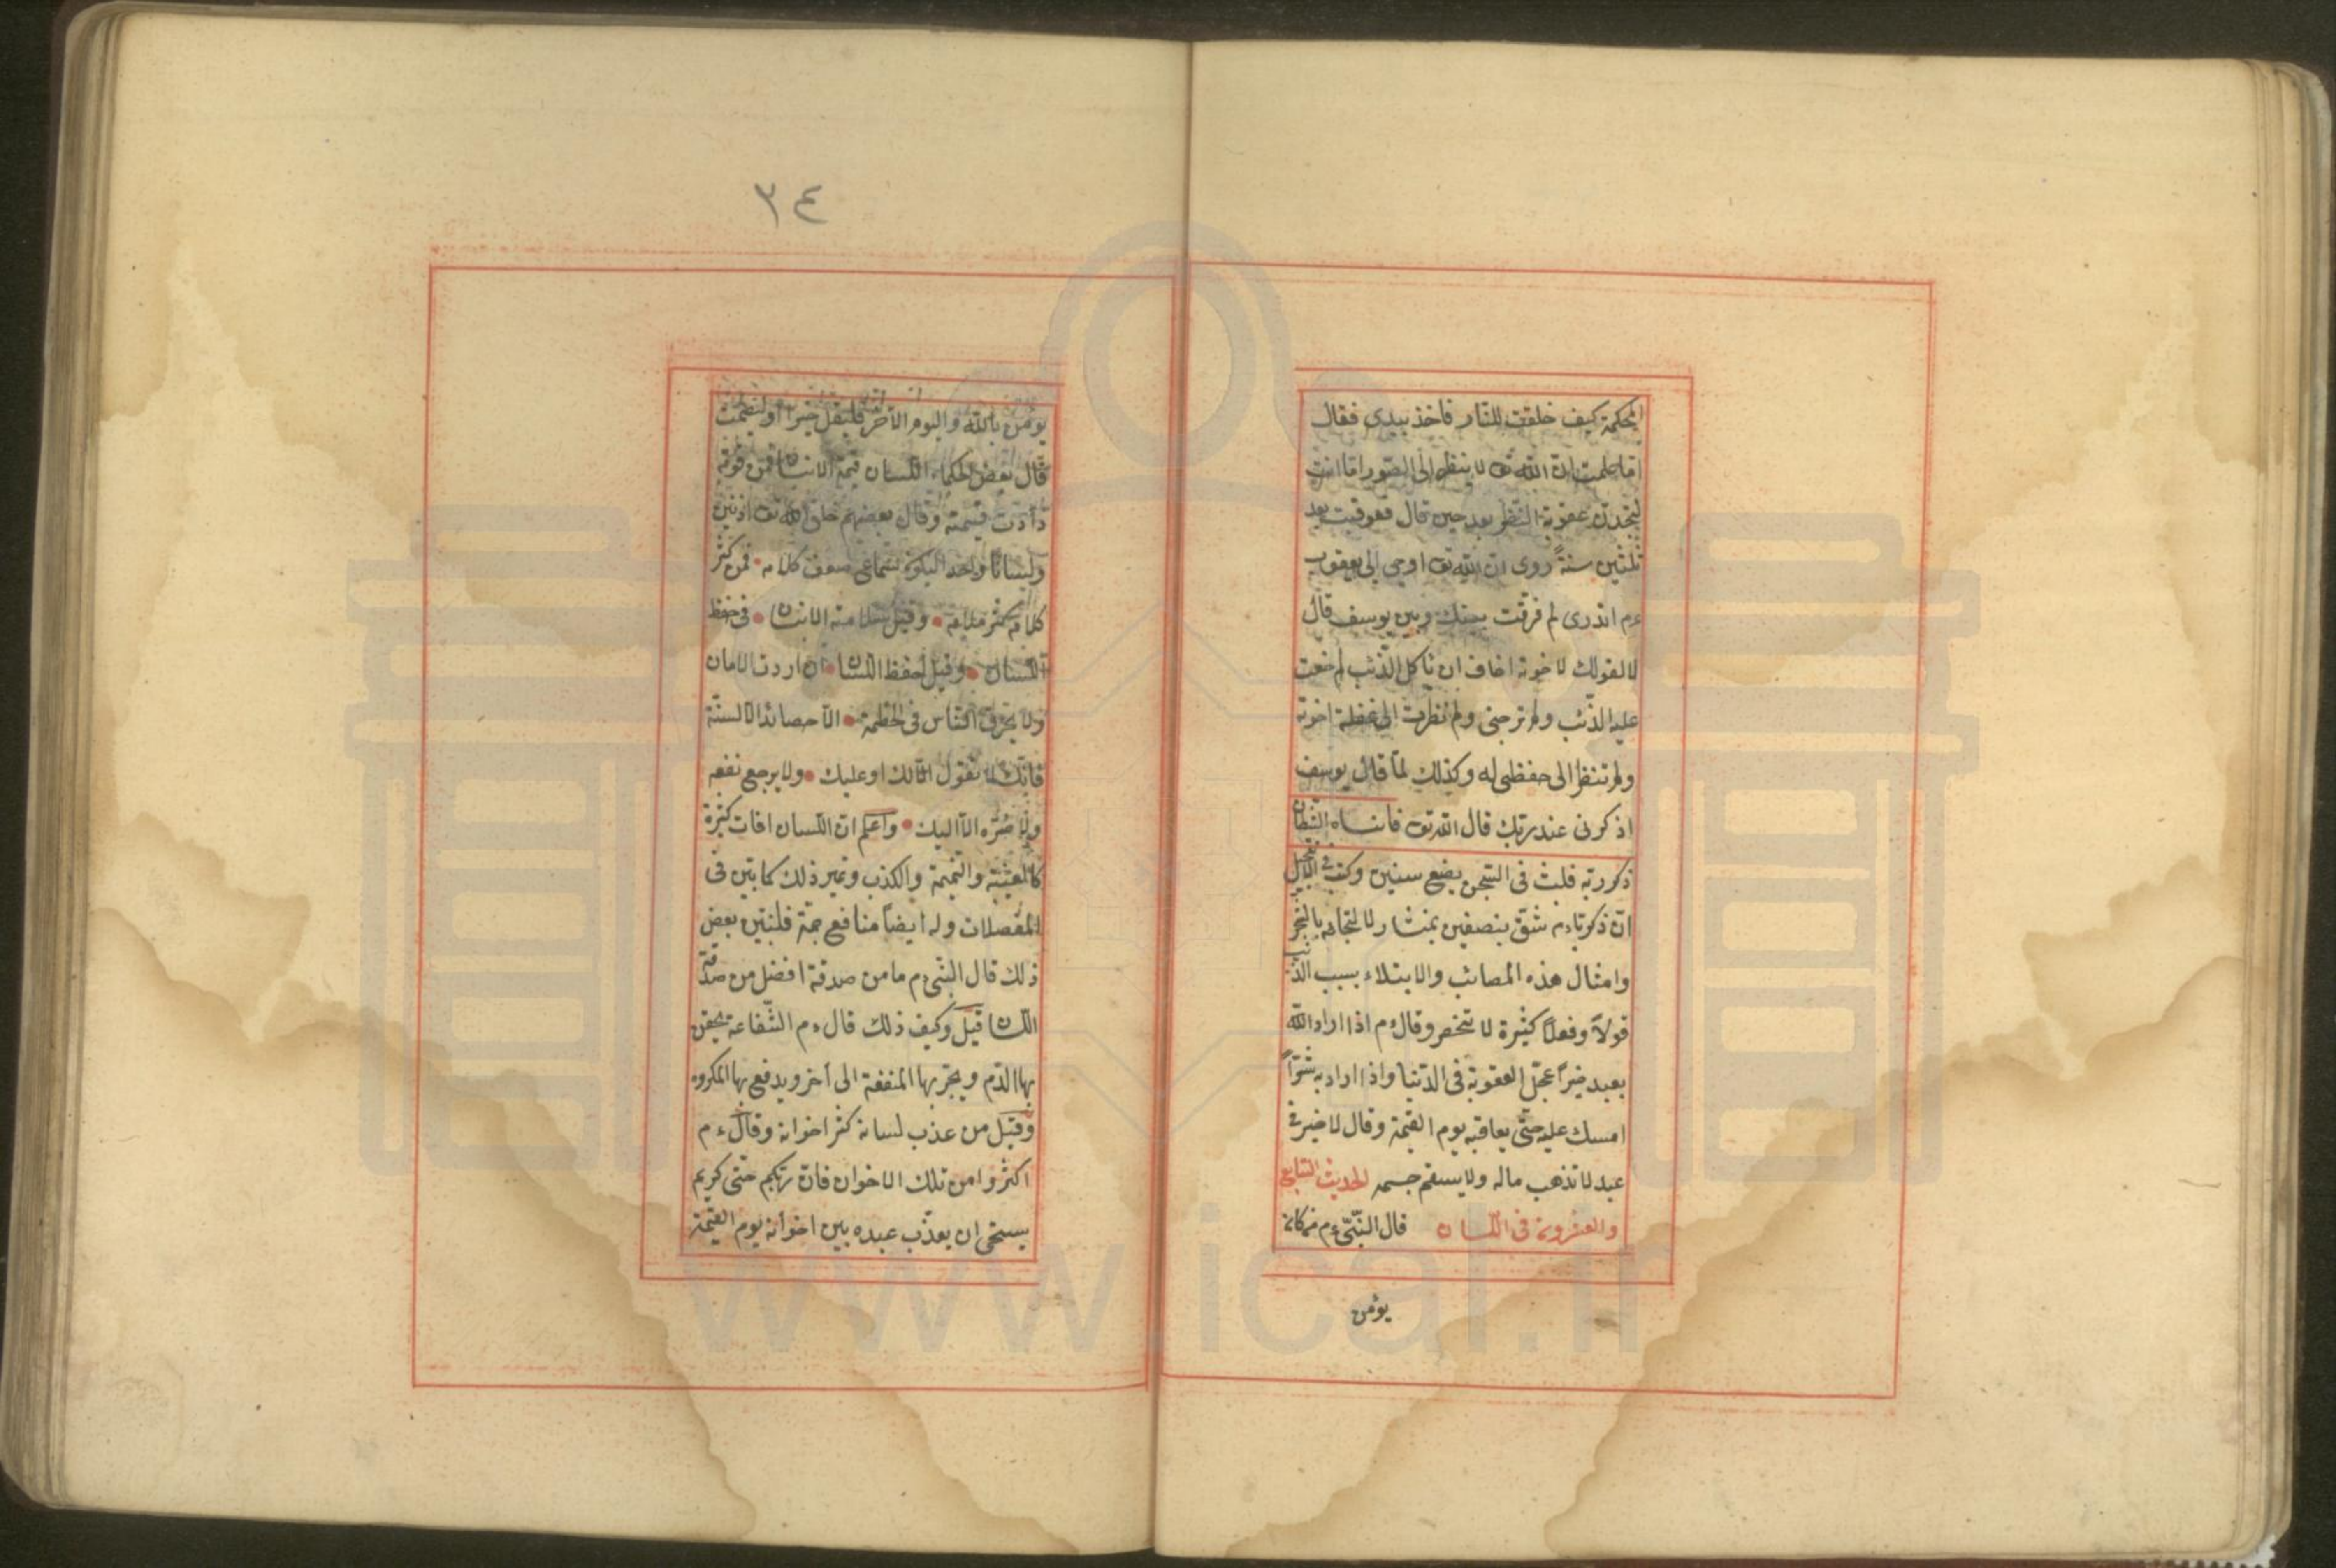 الحكمة كيف خلقت للنار فاخذ بيدى فقال
اما علمت ان الله تع لا ينظر الى الصور اما انت
لتجدن عقوبة النظر بعد حين قال فعوقبت بعد
ثلثين سنةً روى ان الله تع اوحى الى يعقوب
ءم اتدرى لم فرّقت بينك وبين يوسف قال
لا لقولك لاخوته اخاف ان ياكل الذّئب لم خفت
عليه الذّئب ولم ترجنى ولم نظرت الى غفلة اخوته
ولم تنظر الى حفظى له وكذلك لمّا قال يوسف
اذكرنى عند ربّك قال الله تع فانساه الشيطان
ذكر ربّه فلبث فى السّجن بضع سنين
انّ ذكريّا ءم شقّ بنصفين بمنشار لالتجائه بالشّجر
وامثال هذه المصائب والابتلاء بسبب الذّنب
قولاً وفعلاً كثيرة لا تنحصر وقال ءم اذا اراد الله
بعبد خيراً عجّل العقوبة فى الدّنيا واذا اراد به شرّاً
امسك عليه حتّى يعاقبه يوم القيمة وقال لا خير فى
عبد لا تذهب ماله ولا يسقم جسمه الحديث السّابع
والعشرون فى اللّسان قال النّبىّ ءم من كان
يؤمن
٣٤
يؤمن بالله واليوم الآخر فليقل خيراً او ليصمت
قال بعض الحكماء اللّسان قيمة الانسان فمن قوّمه
زادت قيمته وقال بعضهم خلق الله تع اذنين
ولساناً واحداً ليكون سماعى ضعف كلامه فمن كثر
كلامه كثر ملامه وقيل سلامة الانسان فى حفظ
اللّسان وقيل احفظ اللّسان ان اردت الامان
ولا يحرق النّاس فى الحطمة الاّ حصائد الالسنة
فانّك لا تقول الاّ لك او عليك ولا يرجع نفعه
ولا ضرّه الاّ اليك واعلم انّ اللّسان افات كثيرة
كالغيبة والنّميمة والكذب وغير ذلك كما بيّن فى
المفصلات وله ايضاً منافع جمّة فلنبيّن بعض
ذلك قال النّبىّ ءم ما من صدقة افضل من صدقة
اللّسان قيل وكيف ذلك قال ءم الشّفاعة يحقن
بها الدّم ويجرّ بها المنفعة الى آخر ويدفع بها المكروه
وقيل من عذب لسانه كثر اخوانه وقال ءم
اكثروا من تلك الاخوان فانّ ربّكم حيّى كريم
يستحى ان يعذّب عبده بين اخوانه يوم القيمة
www.ical.ir